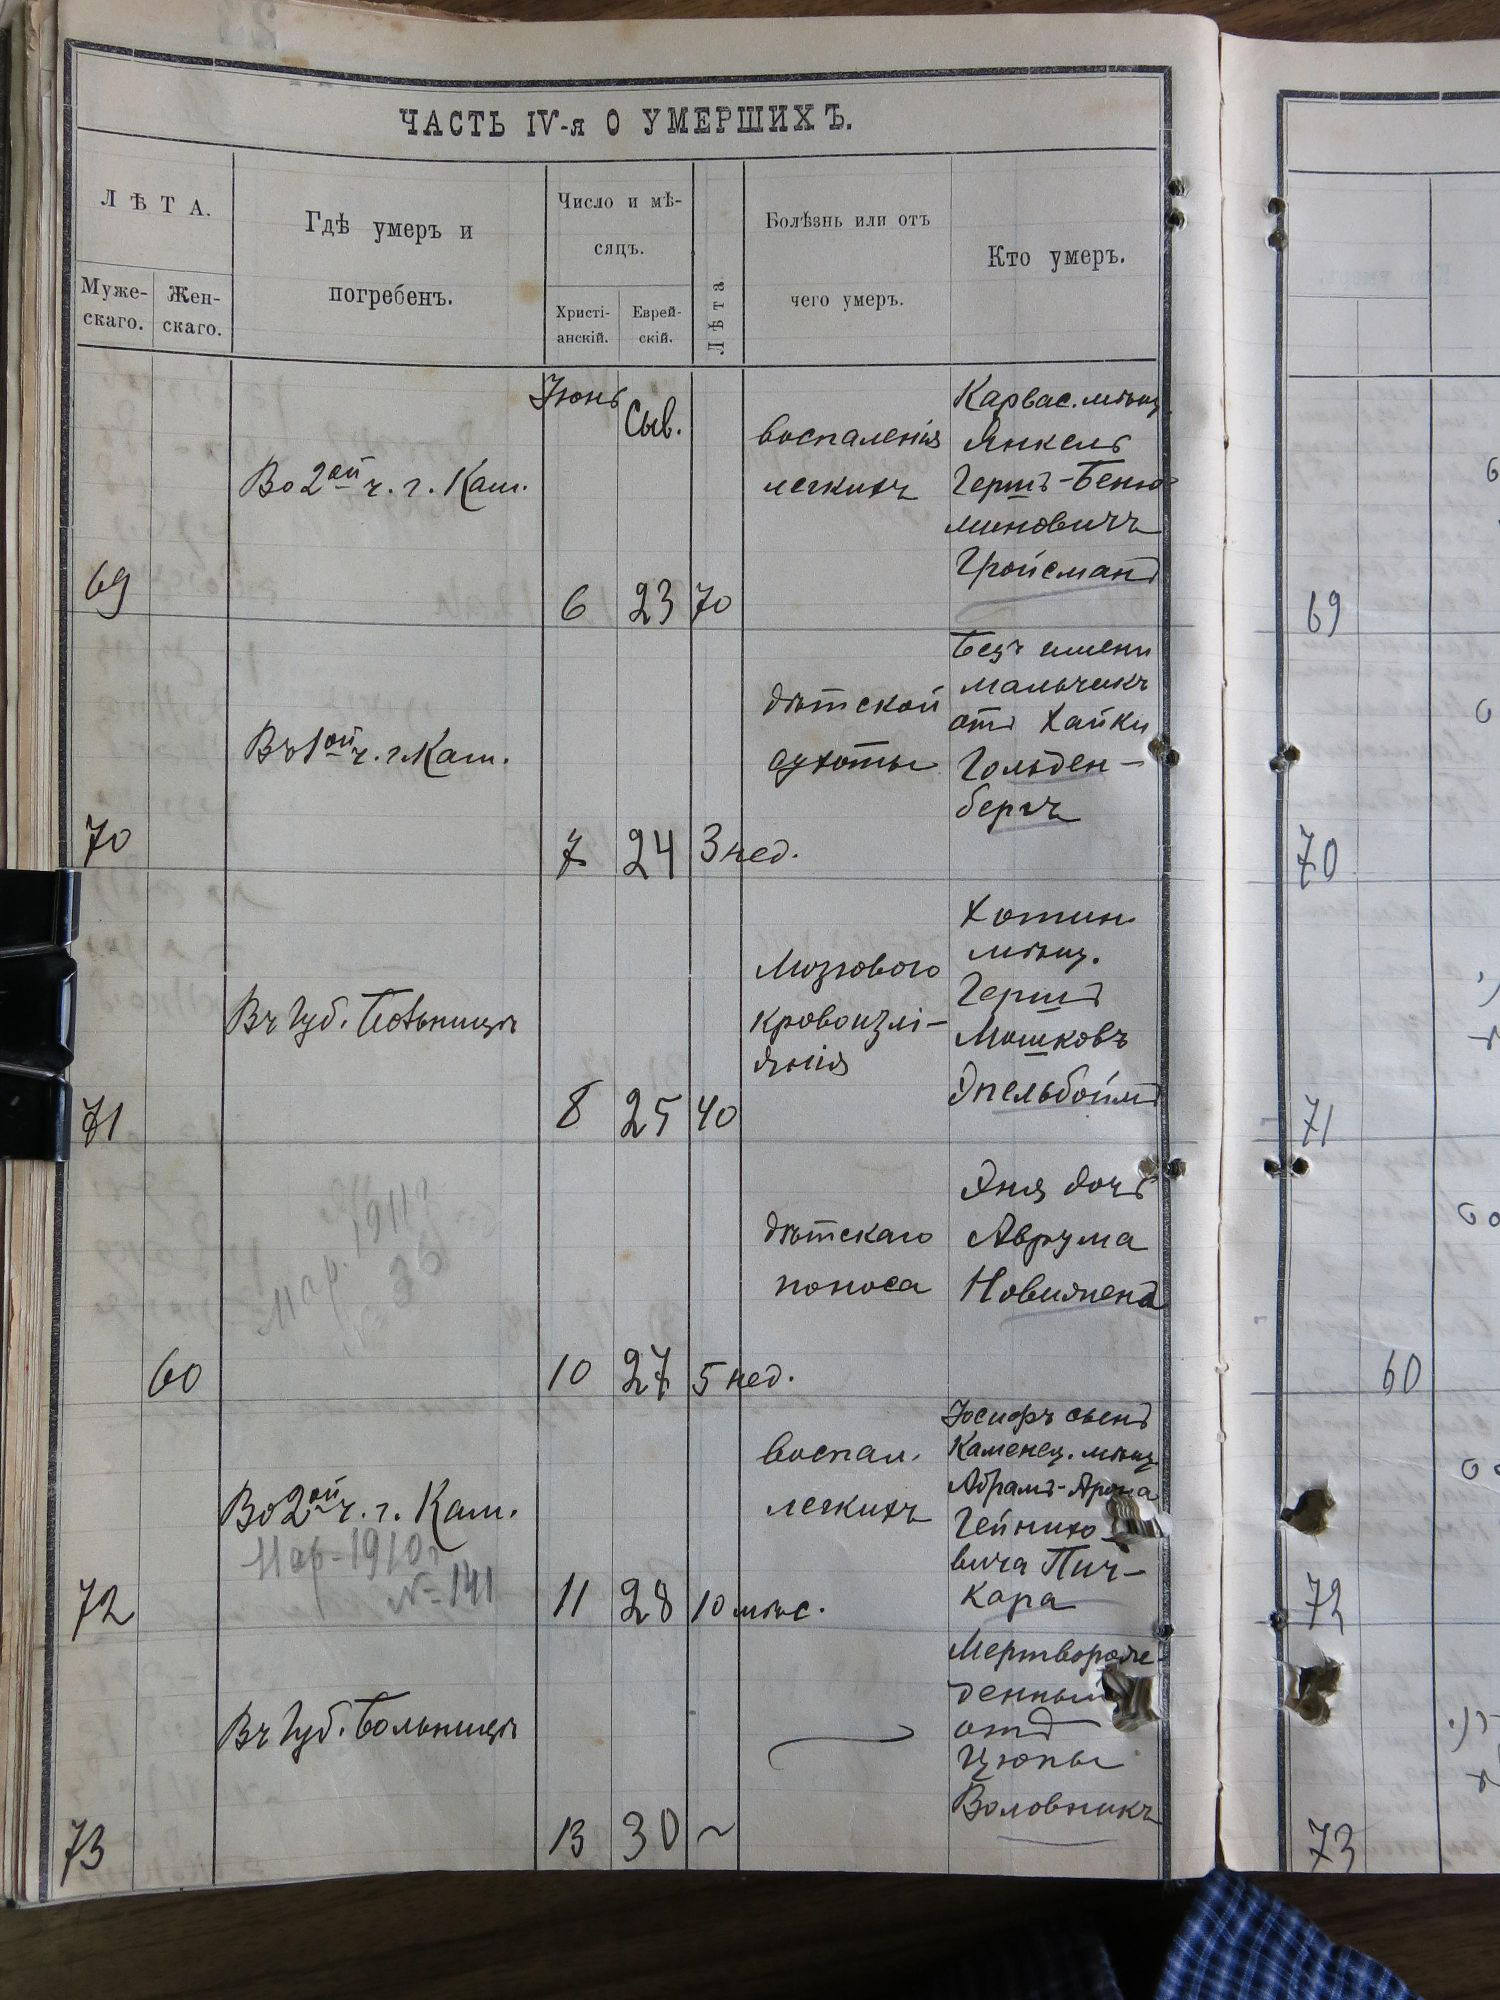 ЧАСТЬ IV-я О УМЕРШИХЪ.
ЛѢТА.
Муже-
скаго.
Жен-
скаго.
Гдѣ умеръ и
погребенъ.
Число и мѣ-
сяцъ.
Христі-
анскій.
Еврей-
скій.
Лѣта
Болѣзнь или отъ
чего умеръ.
Кто умеръ.
69
Во 2ой ч. г. Кам.
Іюнь
6
Сив.
23
70
воспаленія
легкихъ
Карвас. мѣщ.
Янкель
Гершъ-Беню-
миновичъ
Гройсманъ
70
Въ 1ой ч. г. Кам.
7
24
3 нед.
дѣтской
сухоты
Безъ имени
мальчикъ
отъ Хайки
Гольден-
бергъ
71
Въ Губ. Больницѣ
8
25
40
Мозгового
кровоизлі-
янія
Хотин.
мѣщ.
Гершъ
Мошковъ
Эпельбоймъ
60
10
27
5 нед.
дѣтскаго
поноса
дочь
Аврума
72
Во 2ой ч. г. Кам.
1910
№ 141
11
28
10 мѣс.
воспал.
легкихъ
Іосифъ сынъ
Каменец. мѣщ.
Абрамъ-Арона
Гейнихо-
вича Пич-
кара
73
Въ Губ. Больницѣ
13
30
~
Мертворож-
денный
отъ
Ципы
Воловникъ
69
70
71
60
72
73